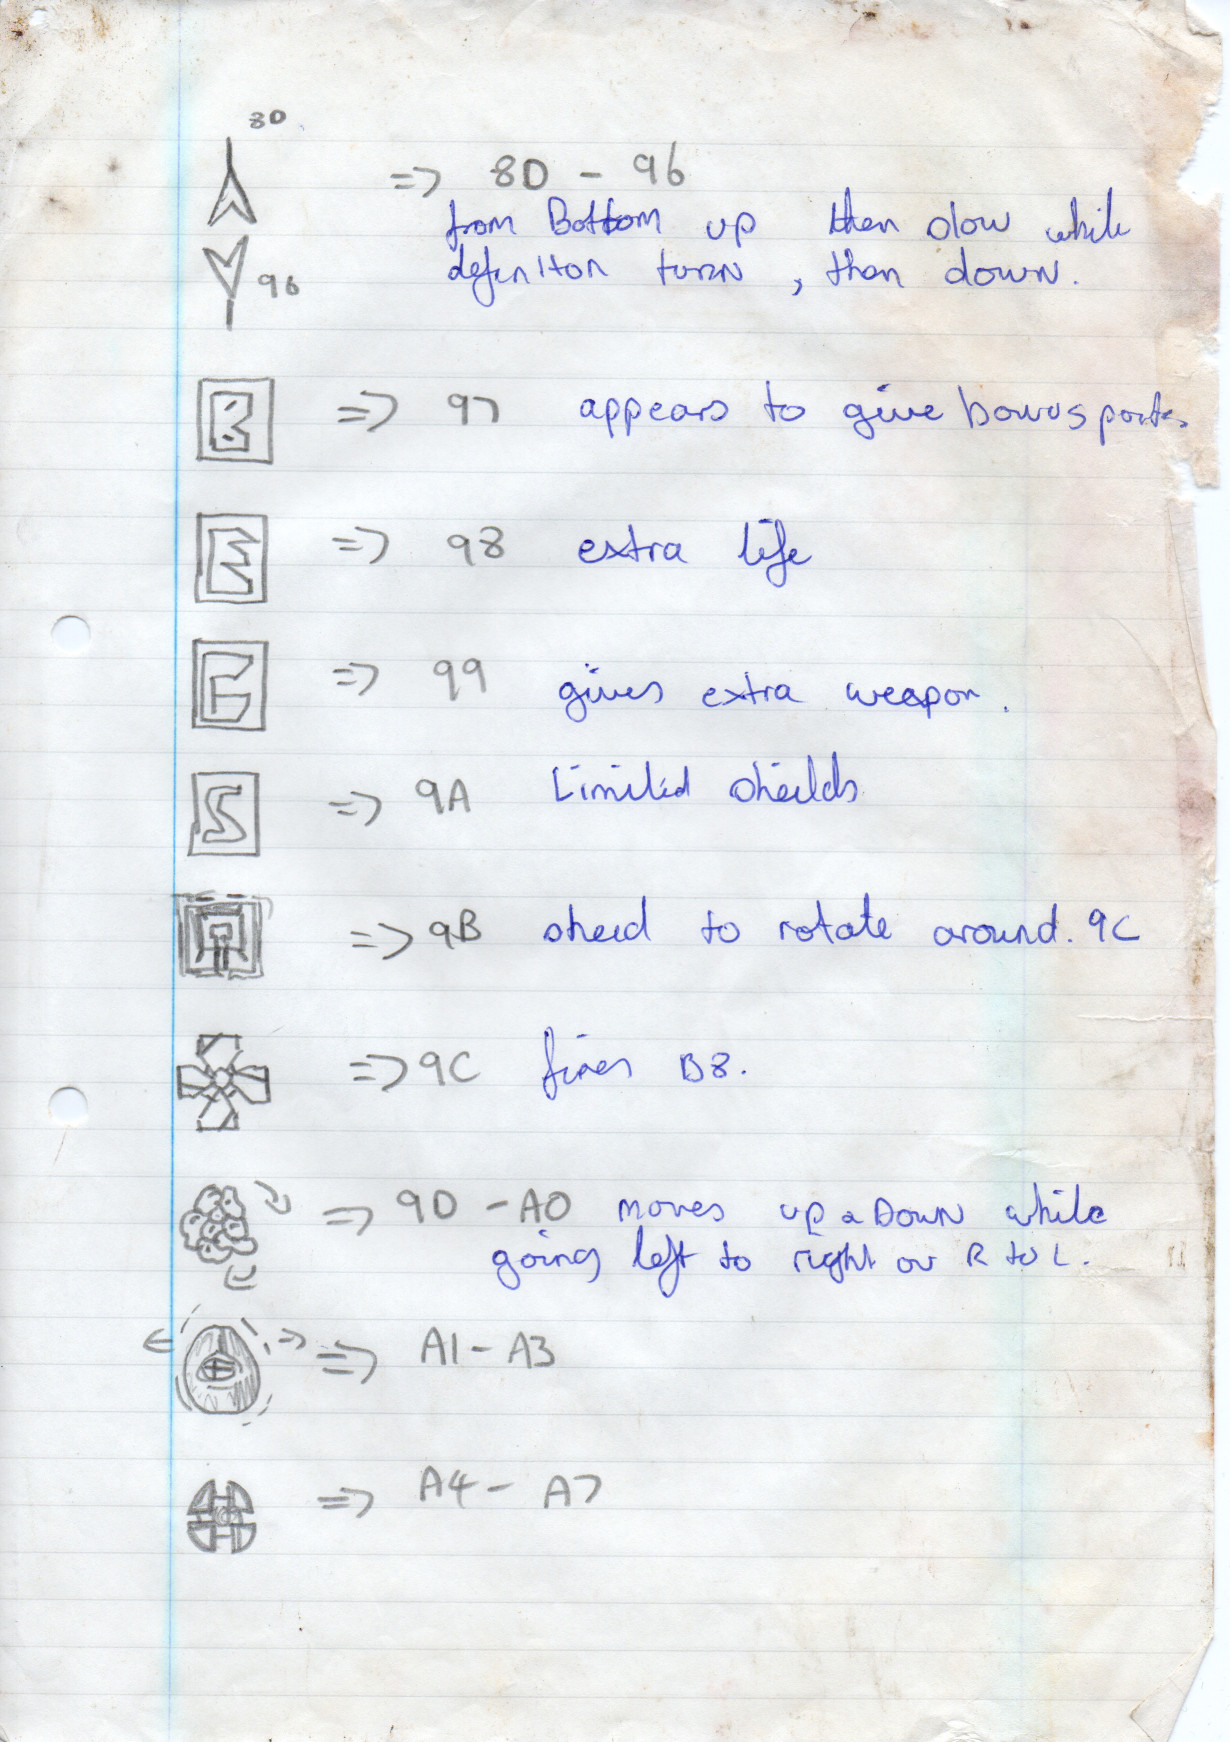 8D
=> 8D - 96
from Bottom up then slow while
96 definiton turn, then down.
B => 97 appears to give bonus points
E => 98 extra life
=> 99 gives extra weapon.
S => 9A Limited sheilds
=> 9B sheid to rotate around. 9C
=> 9C fires B8.
=> 9D - A0 moves up & Down while
going left to right or R to L.
=> A1 - A3
=> A4 - A7